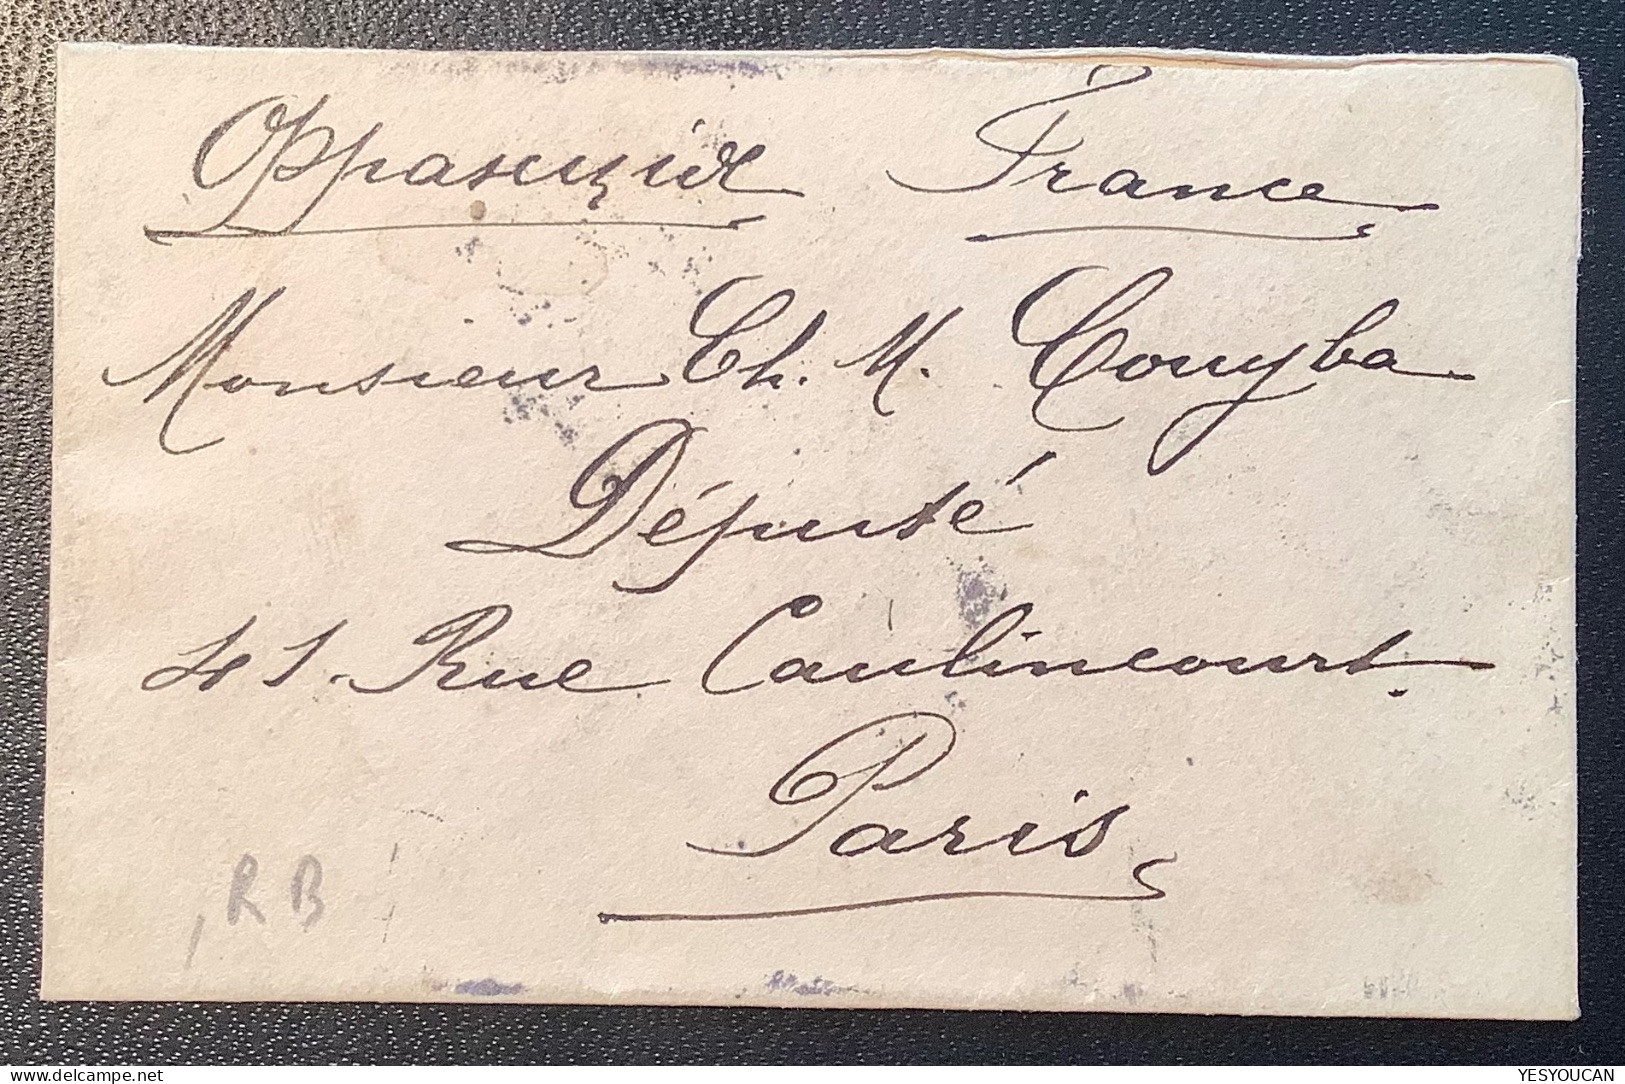 France
Monsieur Ch. M. Couyba
Député
41. Rue Caulincourt.
Paris
RB
YESYOUCAN